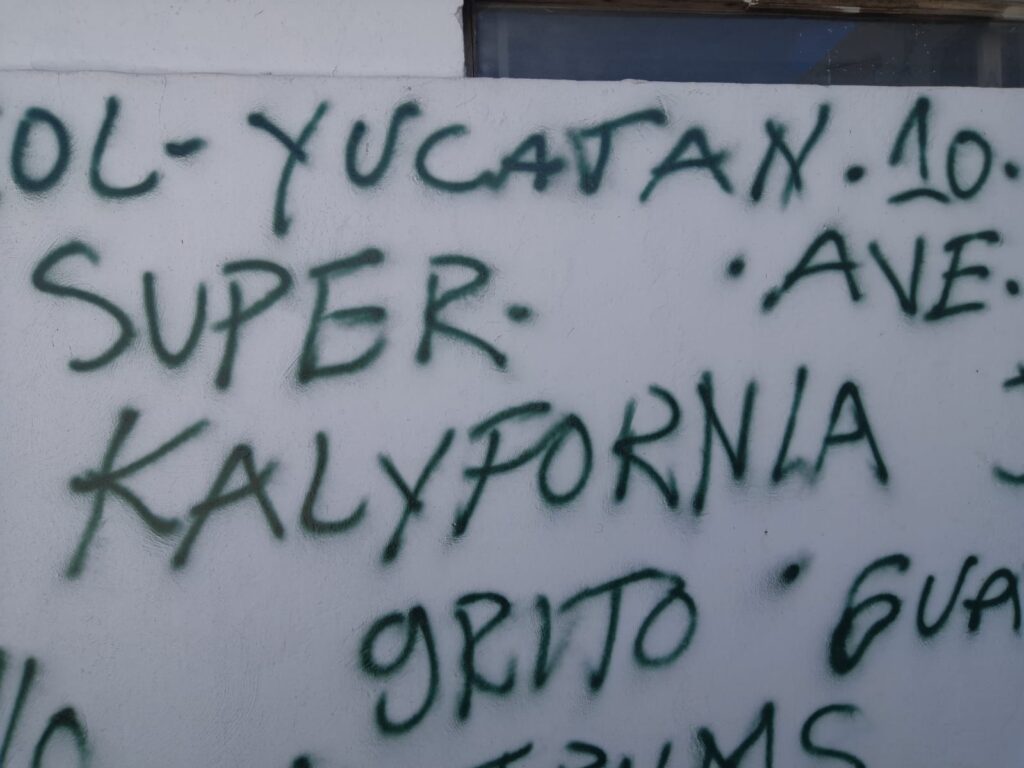 OL-YUCATAN.10.
SUPER. .AVE.
KALYFORNIA
GRITO . GUA